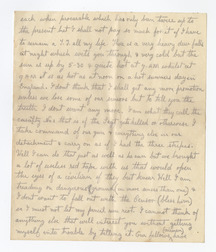 each when procurable which has only been twice up to
the present but I shall not pay so much for it if I have
to remain a T.T. all my life. This is a very heavy dew falls
at night which wets you through & very cold but the
sun is up by 5-30 & quite hot at 7 am whilst at
9 am it is as hot as at noon on a hot summers day in
England. I don't think that I shall get any more promotion
unless we lose some of our seniors but to tell you the
truth I don't want any more. I am what they call the
casualty
that is if the
killed or otherwise I
take command of our gun & everything else in our
detachment & carry on as if I had the three stripes.
Well I can do that just as well as he can but we brought
a lot of medals and
as this would open
the eyes of a civilian if they did know. Still I am
treading on dangerous ground in more senses than one &
I don't want to fall out with the Censor (bless him)
so I must not let my pencil run riot. I cannot think of
anything else that will interest you without getting
myself into trouble by telling it.